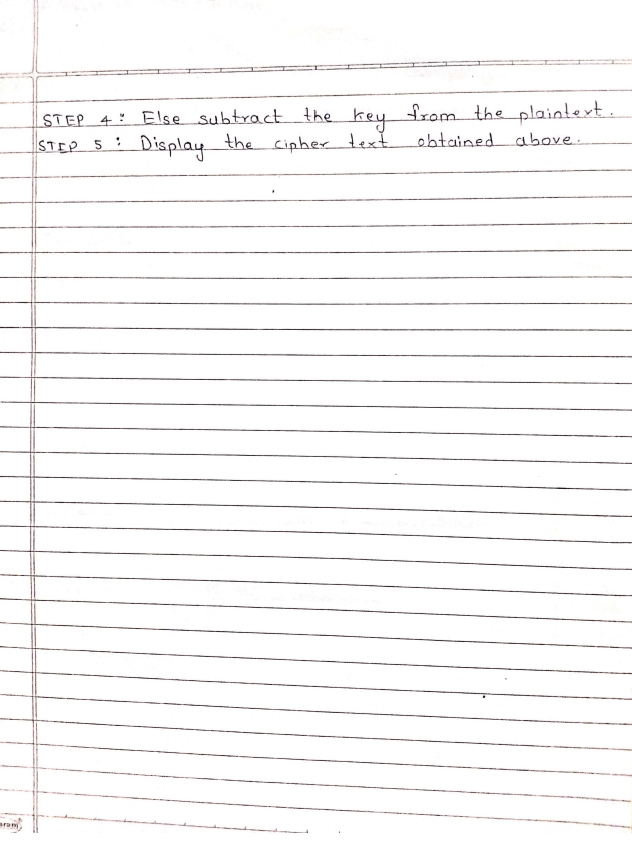 STEP 4 : Else subtract the key from the plaintext.
STEP 5 : Display the cipher text obtained above.